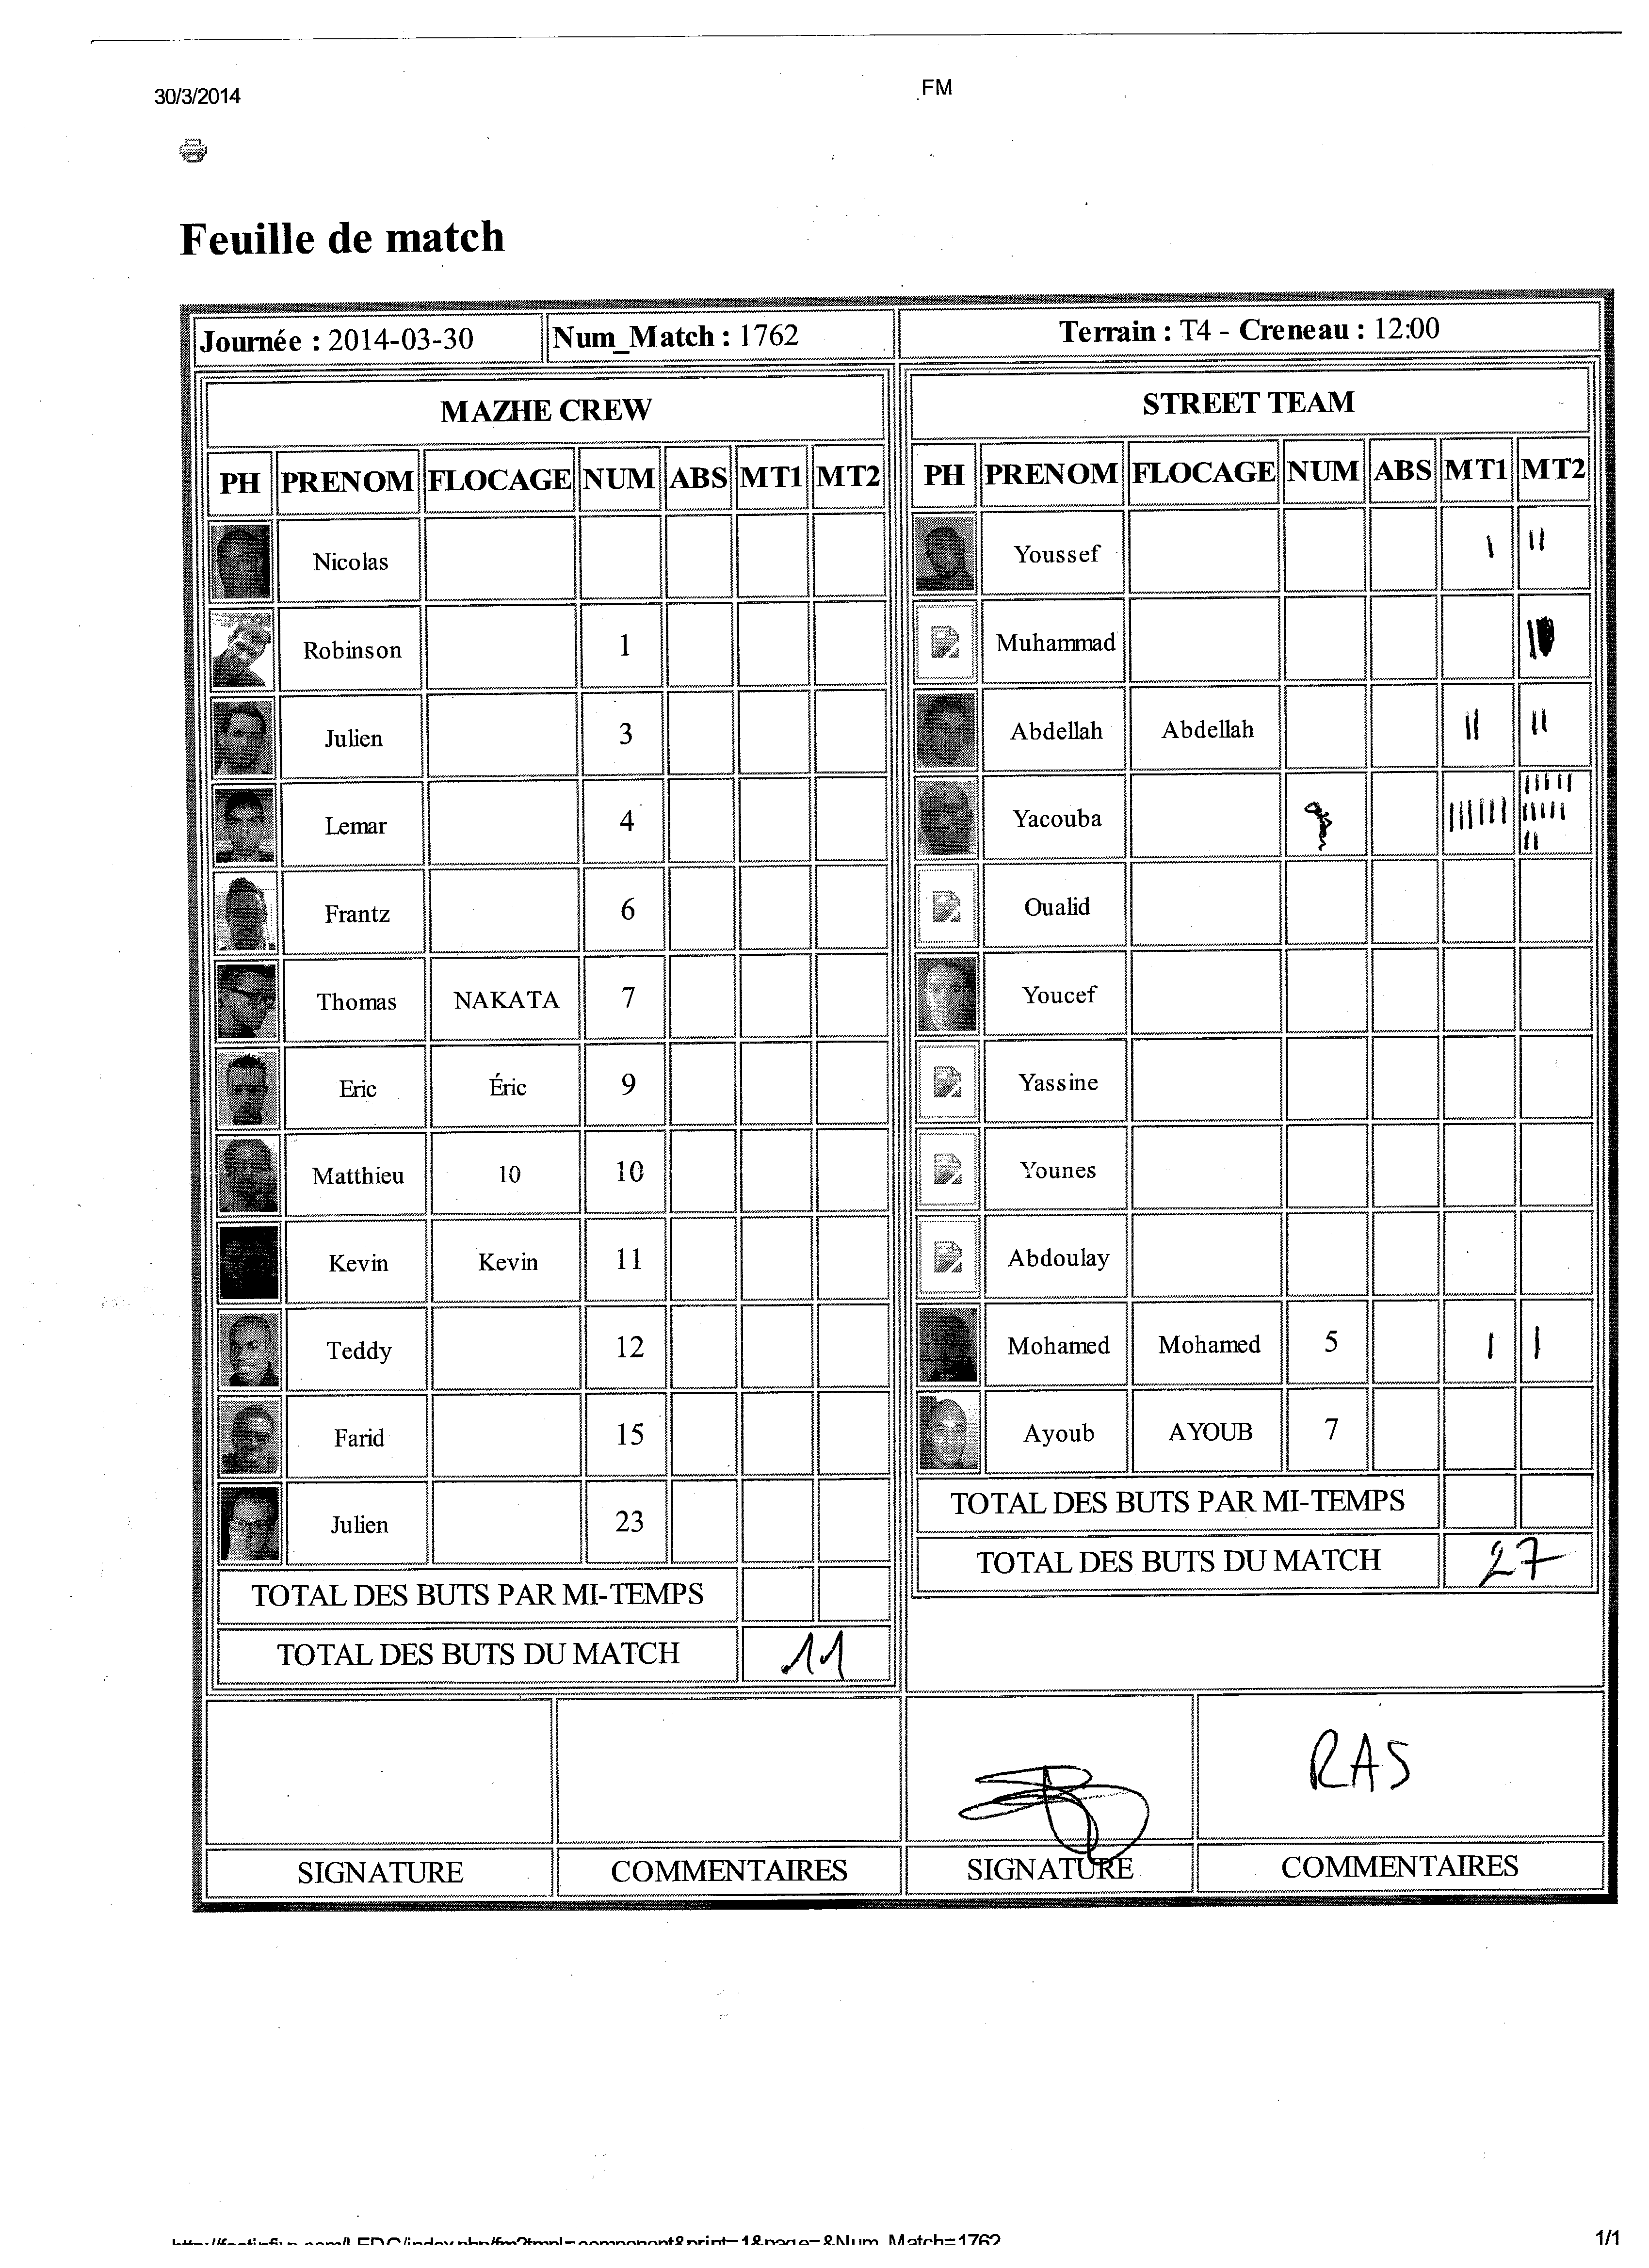 30/3/2014
FM
Feuille de match
Journée : 2014-03-30
Num_Match : 1762
Terrain : T4 - Creneau : 12:00
MAZHE CREW
PH PRENOM FLOCAGE NUM ABS MT1 MT2
Nicolas
Robinson 1
Julien 3
Lemar 4
Frantz 6
Thomas NAKATA 7
Eric Éric 9
Matthieu 10 10
Kevin Kevin 11
Teddy 12
Farid 15
Julien 23
TOTAL DES BUTS PAR MI-TEMPS
TOTAL DES BUTS DU MATCH 11
STREET TEAM
PH PRENOM FLOCAGE NUM ABS MT1 MT2
Youssef I II
Muhammad I
Abdellah Abdellah II II
Yacouba IIIIII IIIII IIIII II
Oualid
Youcef
Yassine
Younes
Abdoulay
Mohamed Mohamed 5 I I
Ayoub AYOUB 7
TOTAL DES BUTS PAR MI-TEMPS
TOTAL DES BUTS DU MATCH 27
RAS
SIGNATURE COMMENTAIRES SIGNATURE COMMENTAIRES
1/1